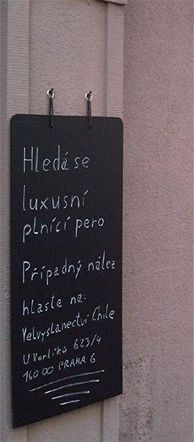 Hledá se
luxusní
plnící pero
Případný nález
hlaste na:
Velvyslanectví Chile
U Vorlíků 623/4
160 00 PRAHA 6